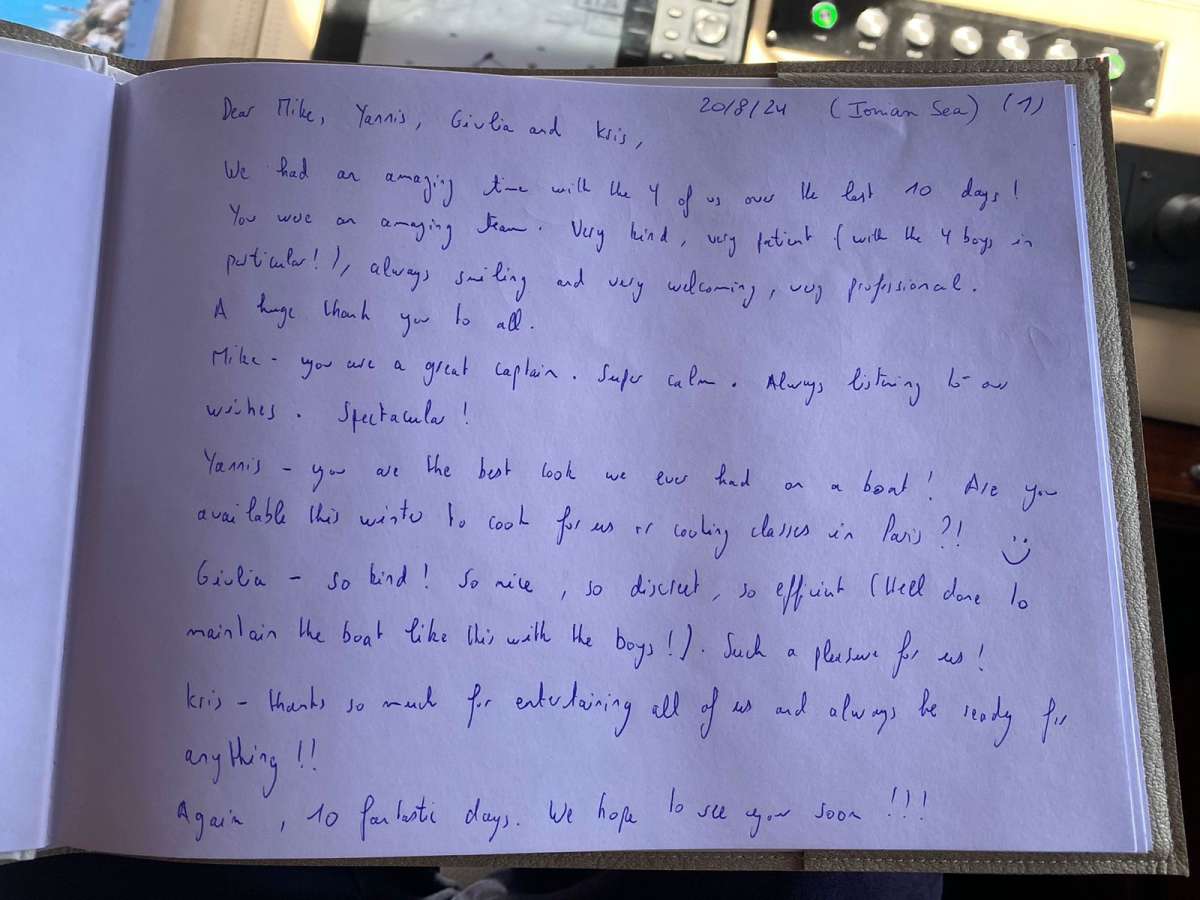 Dear Mike, Yannis, Giulia and Kris, 20/8/24 (Ionian Sea) (1)
We had an amazing time with the 4 of us over the last 10 days!
You were an amazing team. Very kind, very patient (with the 4 boys in
particular!), always smiling and very welcoming, very professional.
A huge thank you to all.
Mike - you are a great captain. Super calm. Always listening to our
wishes. Spectacular!
Yannis - you are the best cook we ever had on a boat! Are you
available this winter to cook for us or cooking classes in Paris?!
Giulia - so kind! So nice, so discreet, so efficient (Well done to
maintain the boat like this with the boys!). Such a pleasure for us!
Kris - thanks so much for entertaining all of us and always be ready for
anything!!
Again, 10 fantastic days. We hope to see you soon!!!